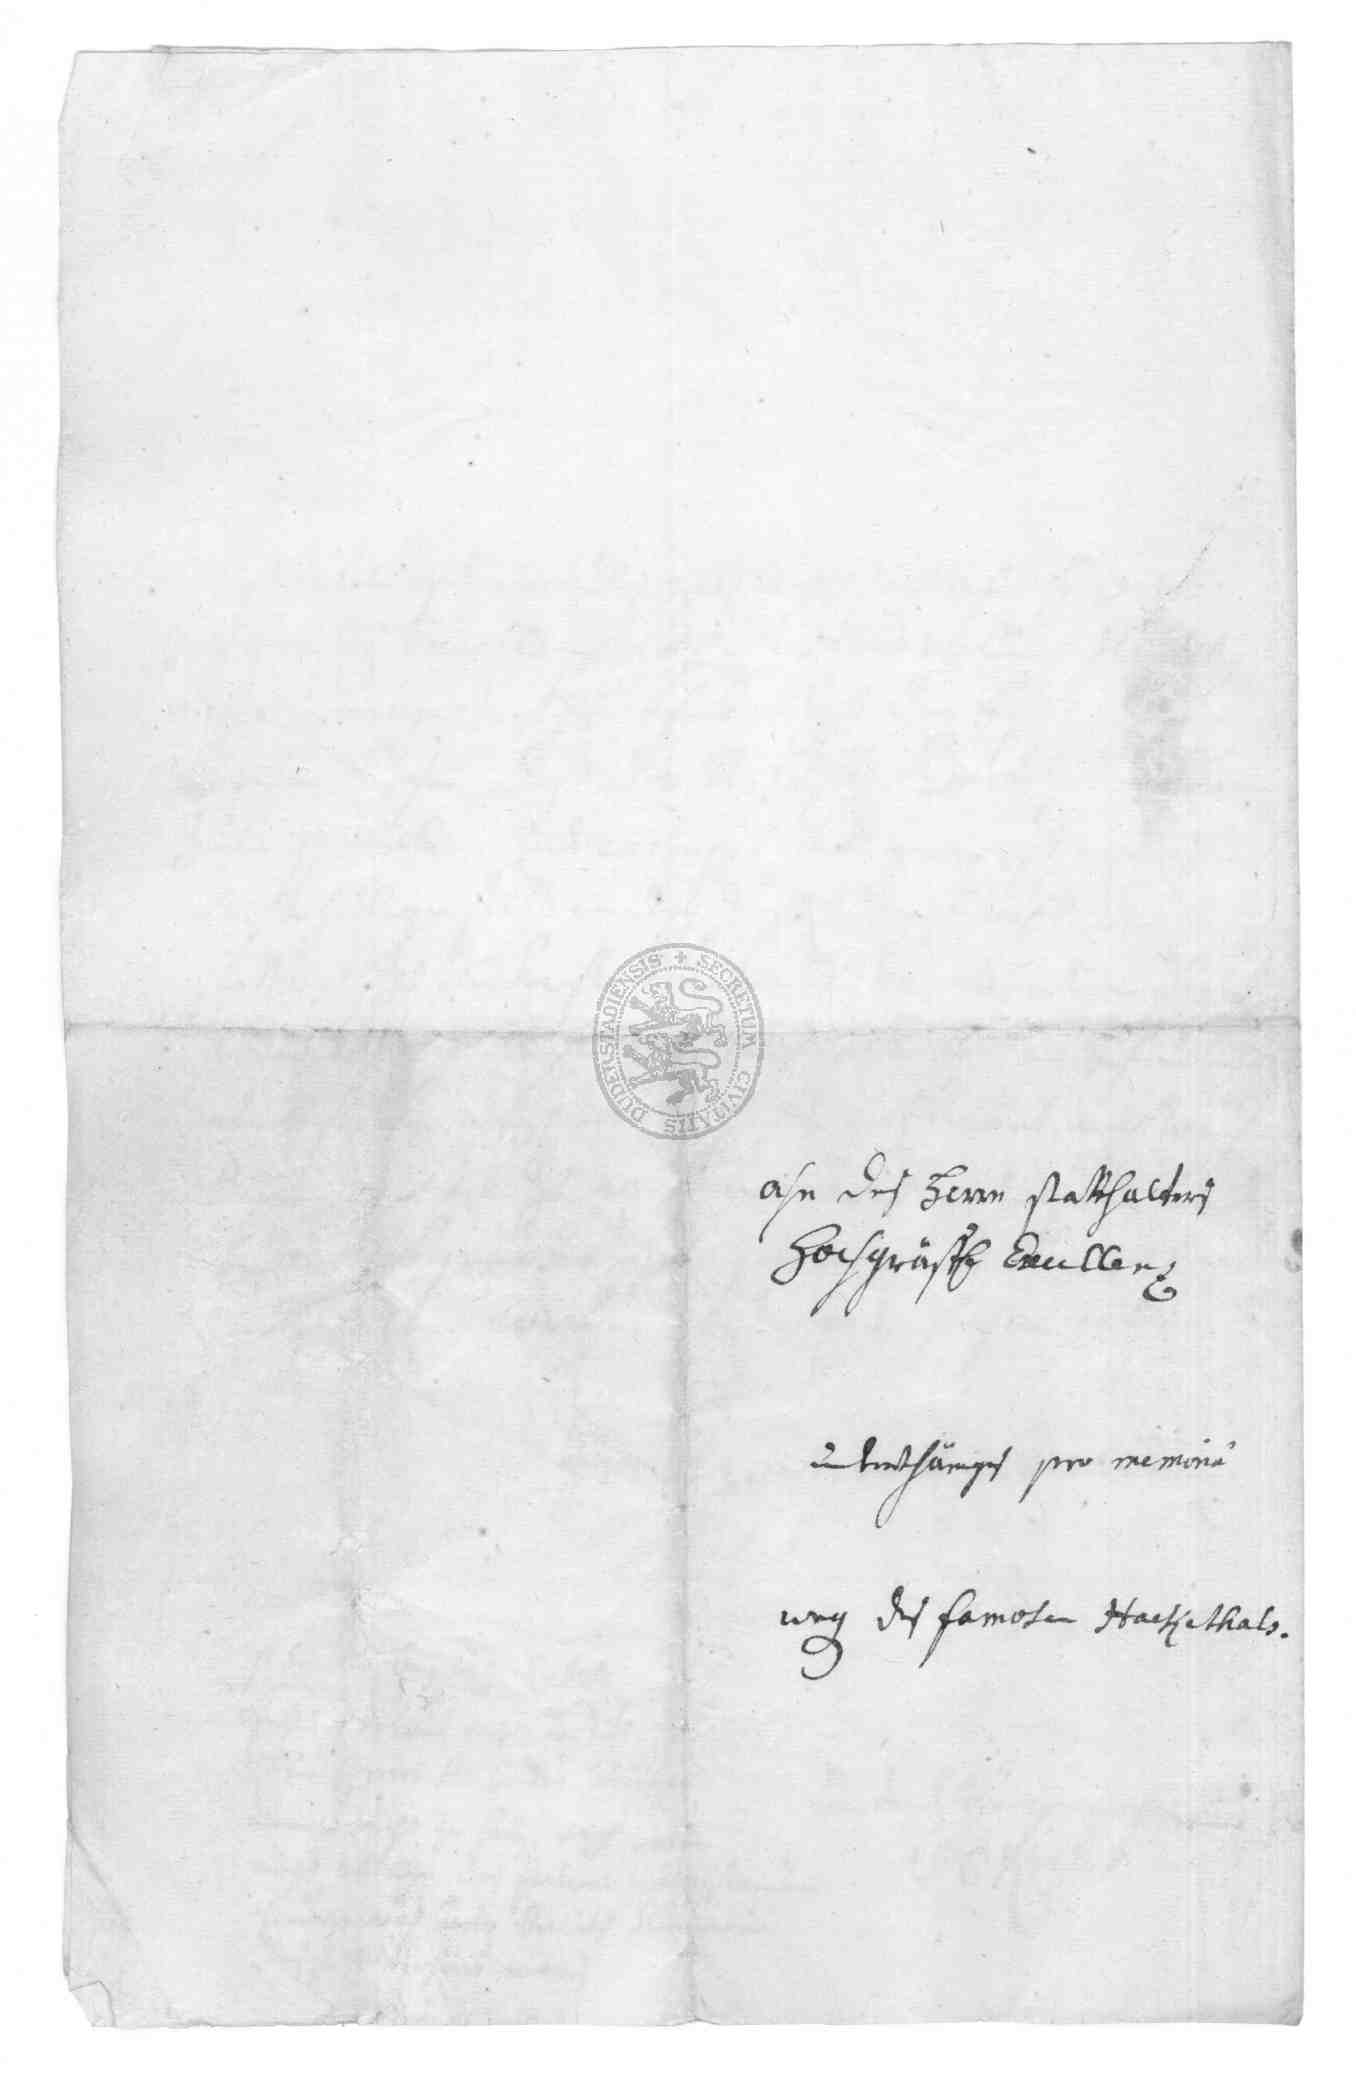 ahn des Herrn statthalters
Hochgräffl Excellenz
unterthäniges pro memoria
weg des famosen Hackethals.
SECRETUM CIVITATIS DUDERSTADIENSIS